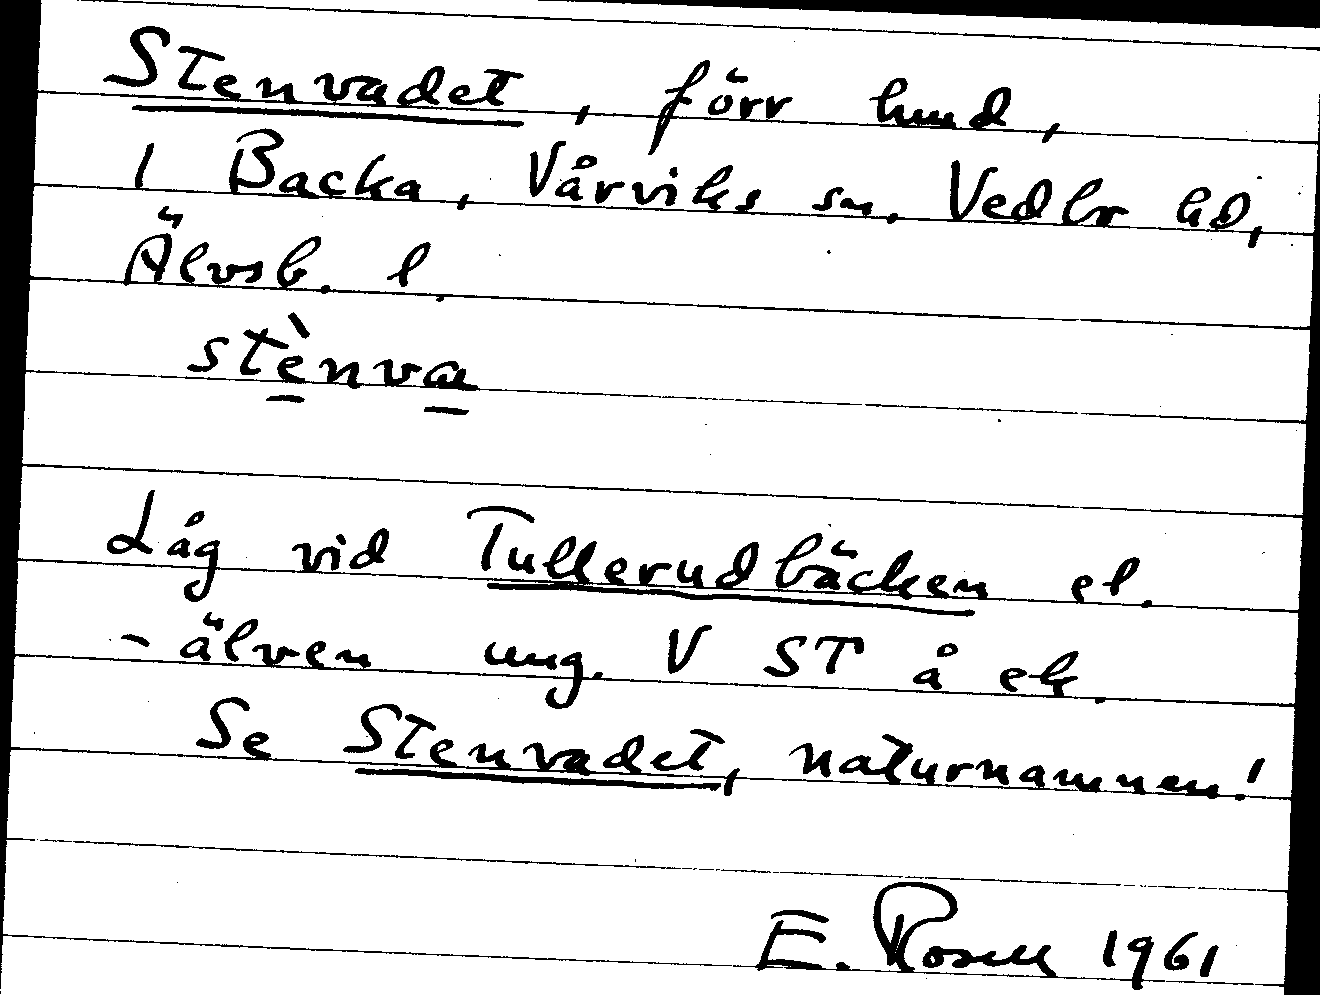 Stenvadet, förr hmd,
i Backa, Vårviks sn. Vedbo hd,
Älvsb. l.
stènva
Låg vid Tullerudbäcken el.
-älven ung. V ST å ek.
Se Stenvadet, naturnamnen!
E. Rosell 1961